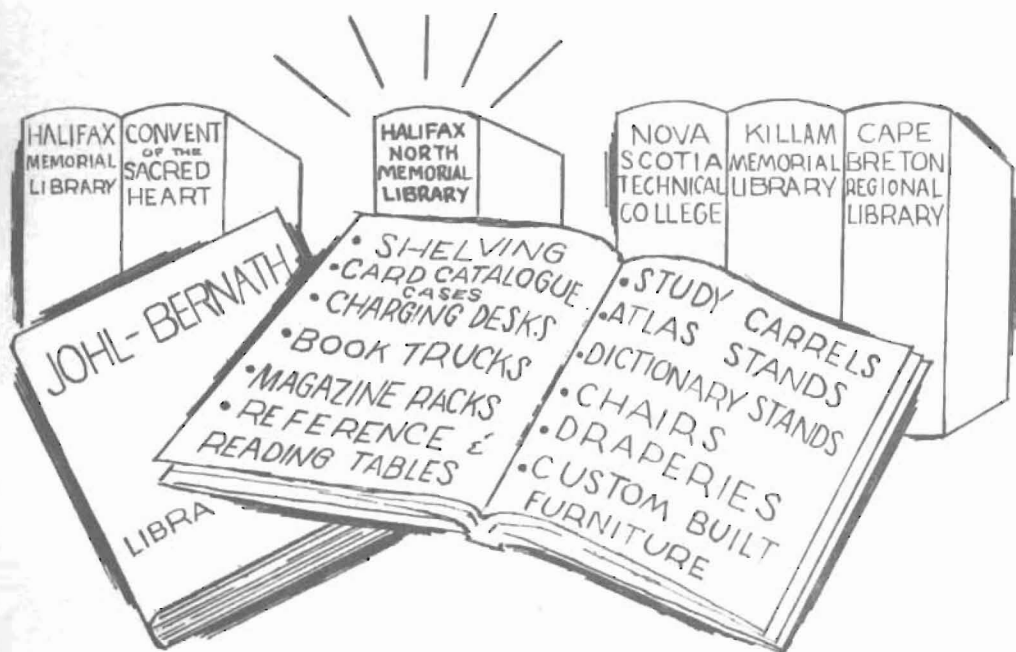 HALIFAX
MEMORIAL
LIBRARY
CONVENT
OF THE
SACRED
HEART
HALIFAX
NORTH
MEMORIAL
LIBRARY
NOVA
SCOTIA
TECHNICAL
COLLEGE
KILLAM
MEMORIAL
LIBRARY
CAPE
BRETON
REGIONAL
LIBRARY
JOHL-BERNATH
LIBRA
• SHELVING
• CARD CATALOGUE
CASES
• CHARGING DESKS
• BOOK TRUCKS
• MAGAZINE RACKS
• REFERENCE &
READING TABLES
• STUDY CARRELS
• ATLAS STANDS
• DICTIONARY STANDS
• CHAIRS
• DRAPERIES
• CUSTOM BUILT
FURNITURE